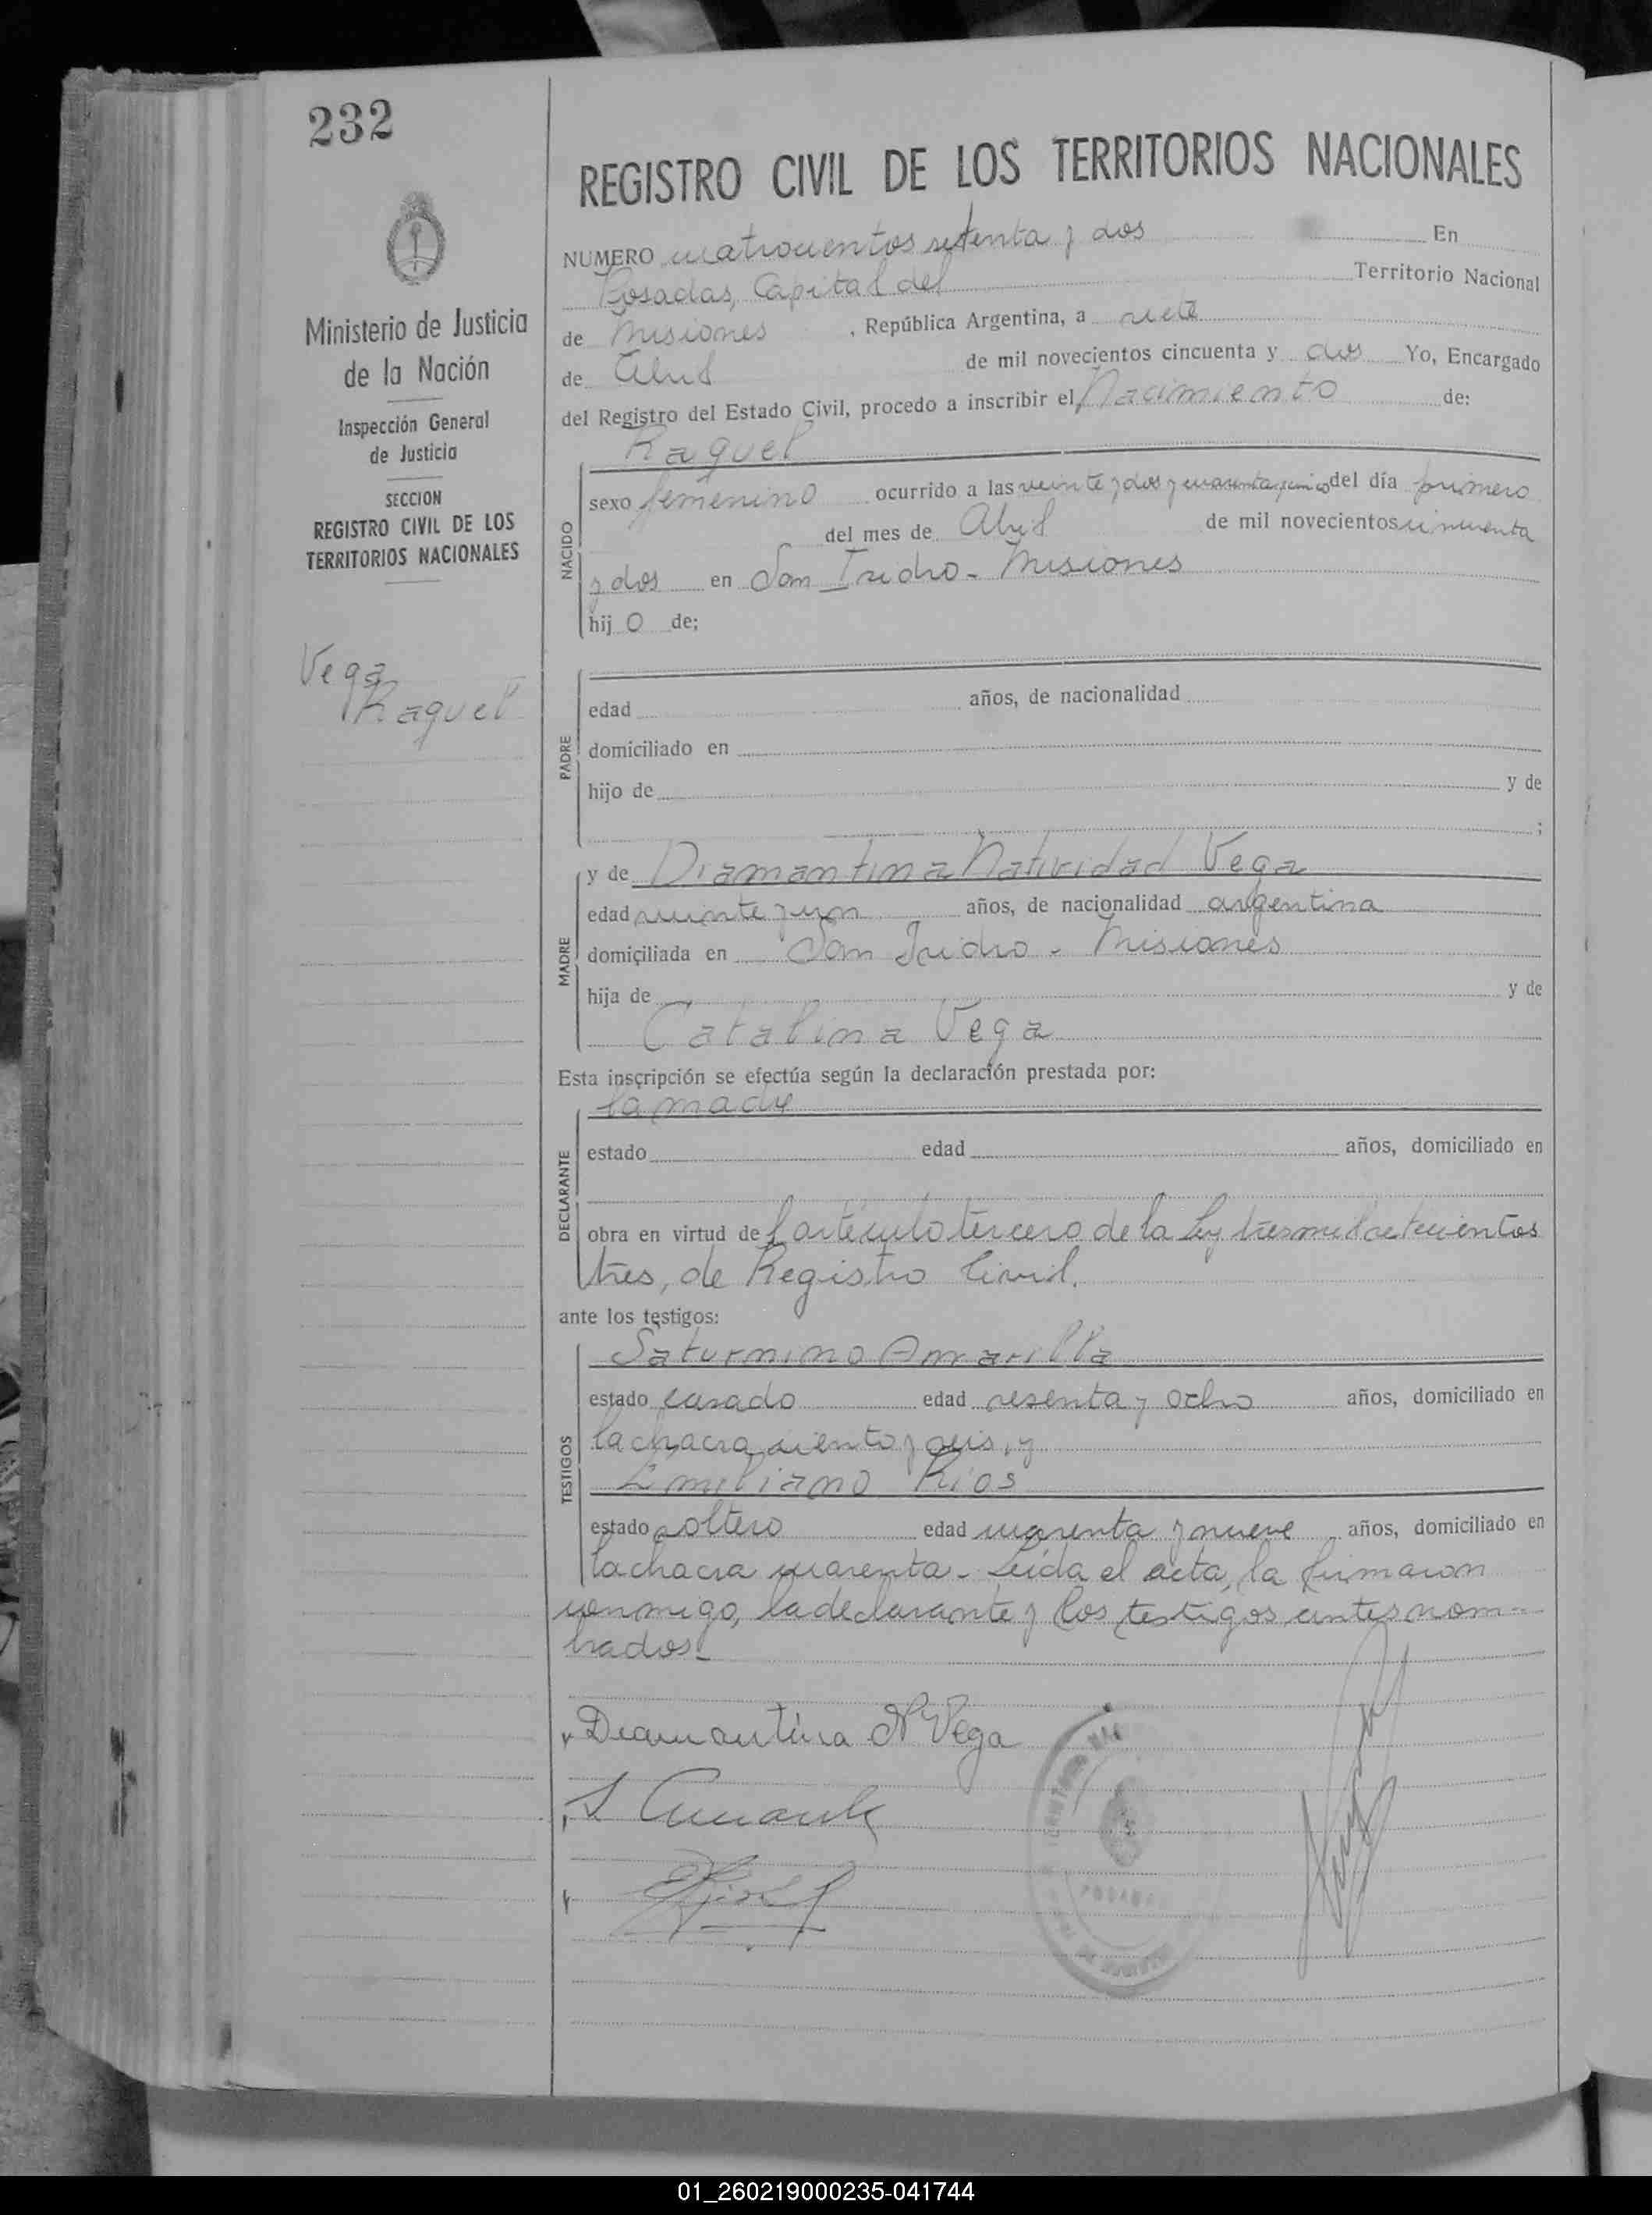 232
Ministerio de Justicia
de la Nación
Inspección General
de Justicia
SECCION
REGISTRO CIVIL DE LOS
TERRITORIOS NACIONALES
Vega
Raquel
REGISTRO CIVIL DE LOS TERRITORIOS NACIONALES
NUMERO cuatrocientos setenta y dos En
Posadas, Capital del Territorio Nacional
de Misiones , República Argentina, a siete
de Abril de mil novecientos cincuenta y dos Yo, Encargado
del Registro del Estado Civil, procedo a inscribir el Nacimiento de:
Raquel
NACIDO
sexo femenino ocurrido a las veinte y dos y cuarenta y cinco del día primero
del mes de Abril de mil novecientos cincuenta
y dos en San Isidro - Misiones
hij o de;
PADRE
edad años, de nacionalidad
domiciliado en
hijo de y de
;
MADRE
y de Diamantina Natividad Vega
edad veinte y un años, de nacionalidad argentina
domiciliada en San Isidro - Misiones
hija de y de
Catalina Vega
Esta inscripción se efectúa según la declaración prestada por:
DECLARANTE
la madre
estado edad años, domiciliado en
obra en virtud del artículo tercero de la Ley tres mil setecientos
tres, de Registro Civil.
ante los testigos:
TESTIGOS
Saturnino Amarilla
estado casado edad sesenta y ocho años, domiciliado en
la chacra ciento y seis, y
Emiliano Ríos
estado soltero edad cuarenta y nueve años, domiciliado en
la chacra cuarenta - Leída el acta, la firmaron
conmigo, la declarante y los testigos antes nom-
brados.-
Diamantina N Vega
POSADAS
01_260219000235-041744